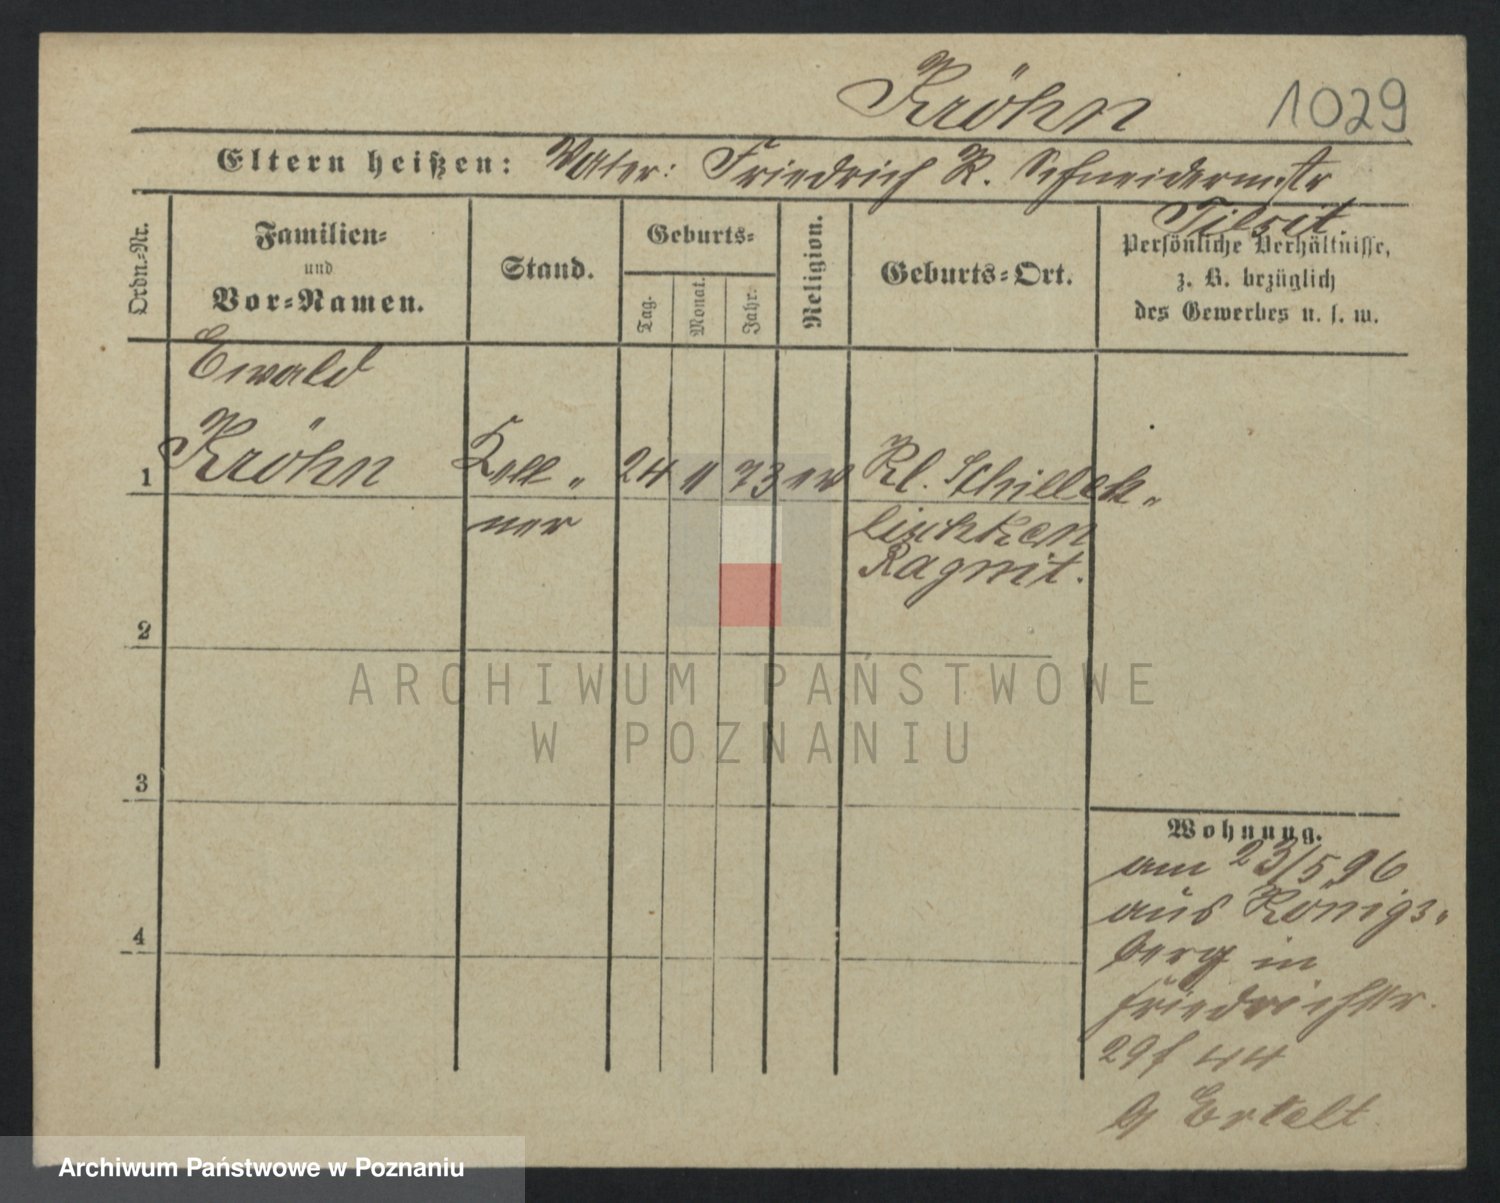 Kröhn 1029
Eltern heißen: Vater: Friedrich K. Schneidermstr
Tilsit.
Ordn.-Nr.
Familien-
und
Vor-Namen.
Stand.
Geburts-
Tag.
Monat.
Jahr.
Religion.
Geburts-Ort.
Persönliche Verhältnisse,
z. B. bezüglich
des Gewerbes u. s. w.
Ewald
1 Kröhn Kell- 24 11 73 ev Kl. Schilleh-
ner lischken
Ragnit.
2
ARCHIWUM PAŃSTWOWE
W POZNANIU
3
4
Wohnung.
am 23/5 96
aus Königs-
berg in
Friedrichstr.
29
b/ Erkelt
Archiwum Państwowe w Poznaniu